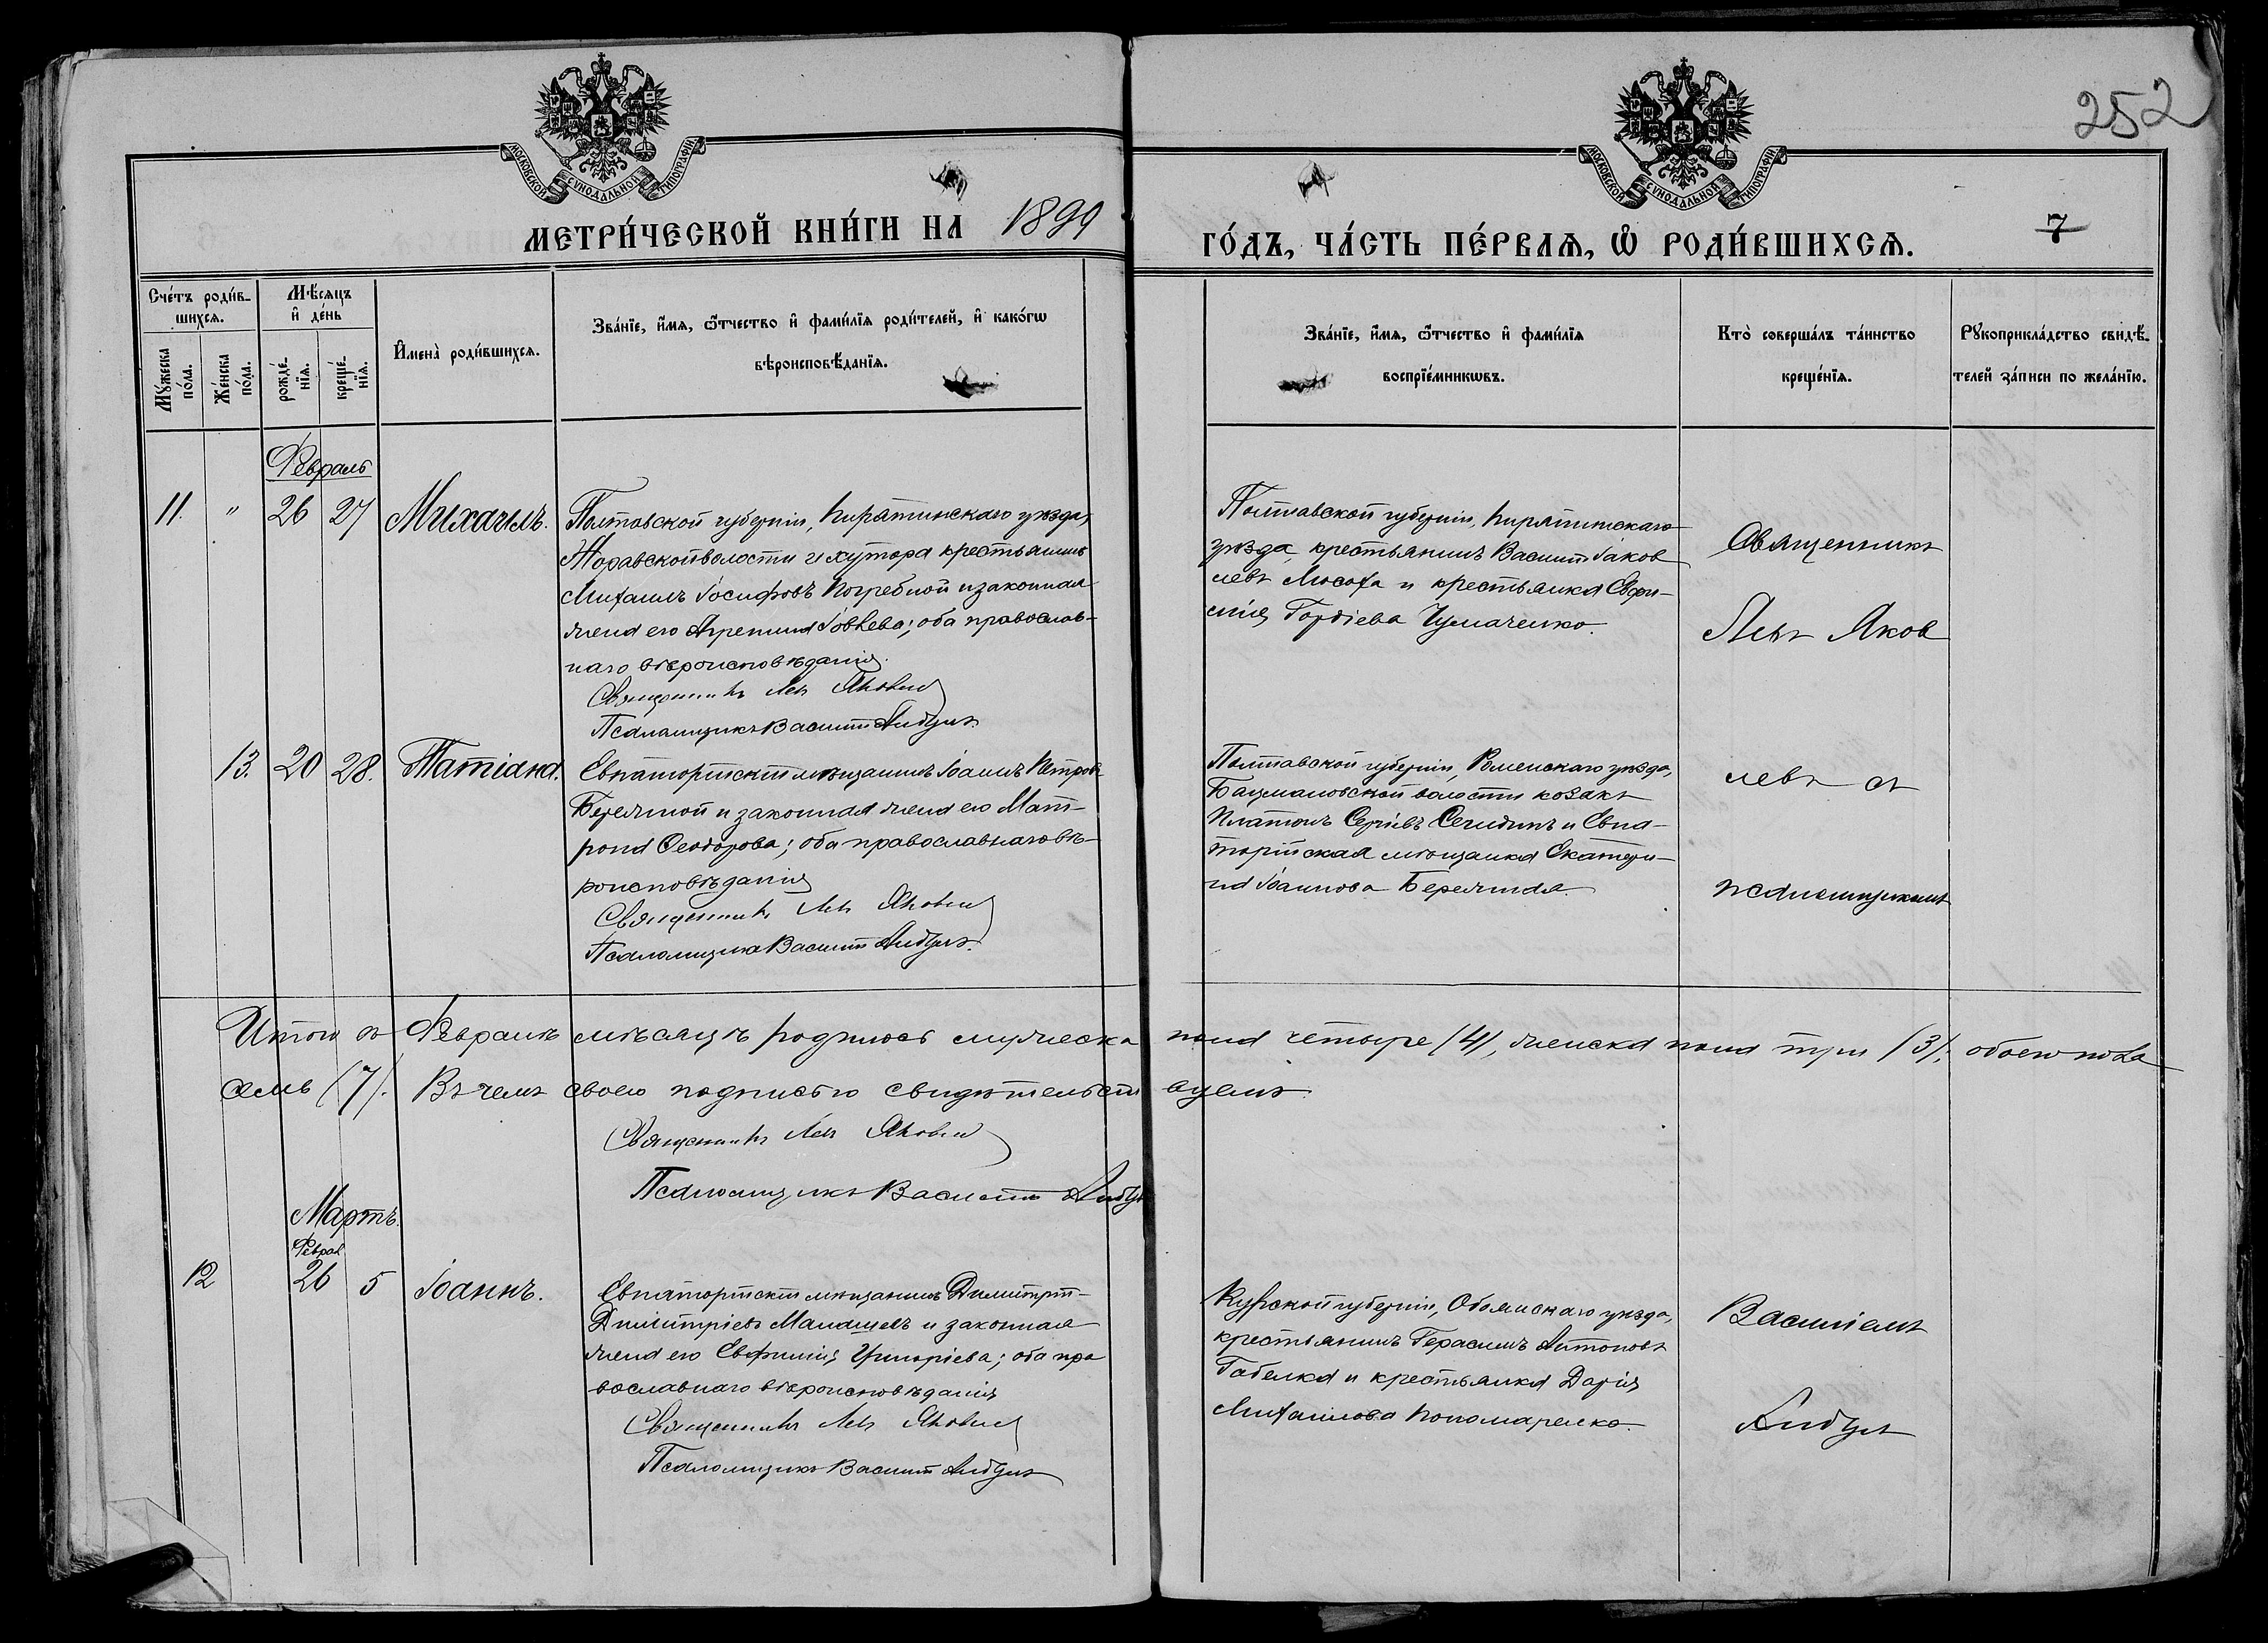 252
МОСКОВСКОЙ СѴНОДАЛЬНОЙ ТИПОГРАФІИ
МОСКОВСКОЙ СѴНОДАЛЬНОЙ ТИПОГРАФІИ
МЕТРИ́ЧЕСКОЙ КНИ́ГИ НА 1899
ГО́ДЪ, ЧА́СТЬ ПЕ́РВАѦ, Ѡ҆ РОДИ́ВШИХСѦ.
7
Сче́тъ роди́в-
шихсѧ.
Мꙋ́жеска
по́ла.
Же́нска
по́ла.
Мѣ́сѧцъ
и҆ де́нь
рожде́-
нїѧ.
креще́-
нїѧ.
И҆мена̀ роди́вшихсѧ.
Зва́нїе, и҆́мѧ, ѻ҆́тчество и҆ фами́лїѧ роди́телей, и҆ како́гѡ
вѣроисповѣ́данїѧ.
Зва́нїе, и҆́мѧ, ѻ҆́тчество и҆ фами́лїѧ
воспрїе́мникѡвъ.
Кто̀ соверша́лъ та́инство
креще́нїѧ.
Рꙋкоприкла́дство свидѣ́-
телей за́писи по жела́нїю.
Февраль
11. " 26 27 Михаилъ.
Полтавской губерніи, Пирятинскаго уѣзда,
Журавской волости и хутора крестьянинъ
Михаилъ Іосифовъ Погребной и законная
жена его Агрепина Іовлева; оба православ-
наго вѣроисповѣданія.
Священникъ Левъ Яковлев
Псаломщикъ Василій
Полтавской губерніи, Пирятинскаго
уѣзда, крестьянинъ Василій Іаков
левъ Мосоха и крестьянка Евфи-
мія Гордіева Чумаченко.
Священникъ
Левъ Яков
13. 20 28. Татіана.
Евпаторійскій мѣщанинъ Іоаннъ Петровъ
Бережной и законная жена его Мат-
рона Ѳеодорова; оба православнаго вѣ-
роисповѣданія
Священникъ Левъ Яковлев
Псаломщикъ Василій
Полтавской губерніи, Роменскаго уѣзда,
волости козакъ
Платонъ Сергіевъ и Евпа-
торійская мѣщанка Екатери-
на Іоаннова Бережная
левъ съ
псаломщикомъ
Итого въ Февралѣ мѣсяцѣ родилось мужеска пола четыре (4), женска пола три (3); обоего пола
семь (7). Въ чемъ своею подписью свидѣтельствуемъ.
Священникъ Левъ Яковлев
Псаломщикъ Василій
Мартъ.
Феврал
12 26 5 Іоаннъ.
Евпаторійскій мѣщанинъ Димитрій
Димитріевъ и законная
жена его Евфимія Григоріева; оба пра
вославнаго вѣроисповѣданія
Священникъ Левъ Яковлев
Псаломщикъ Василій
Курской губерніи, Обоянскаго уѣзда,
крестьянинъ Герасимъ Антоновъ
и крестьянка Дарія
Михаилова Пономаренко.
Василіемъ